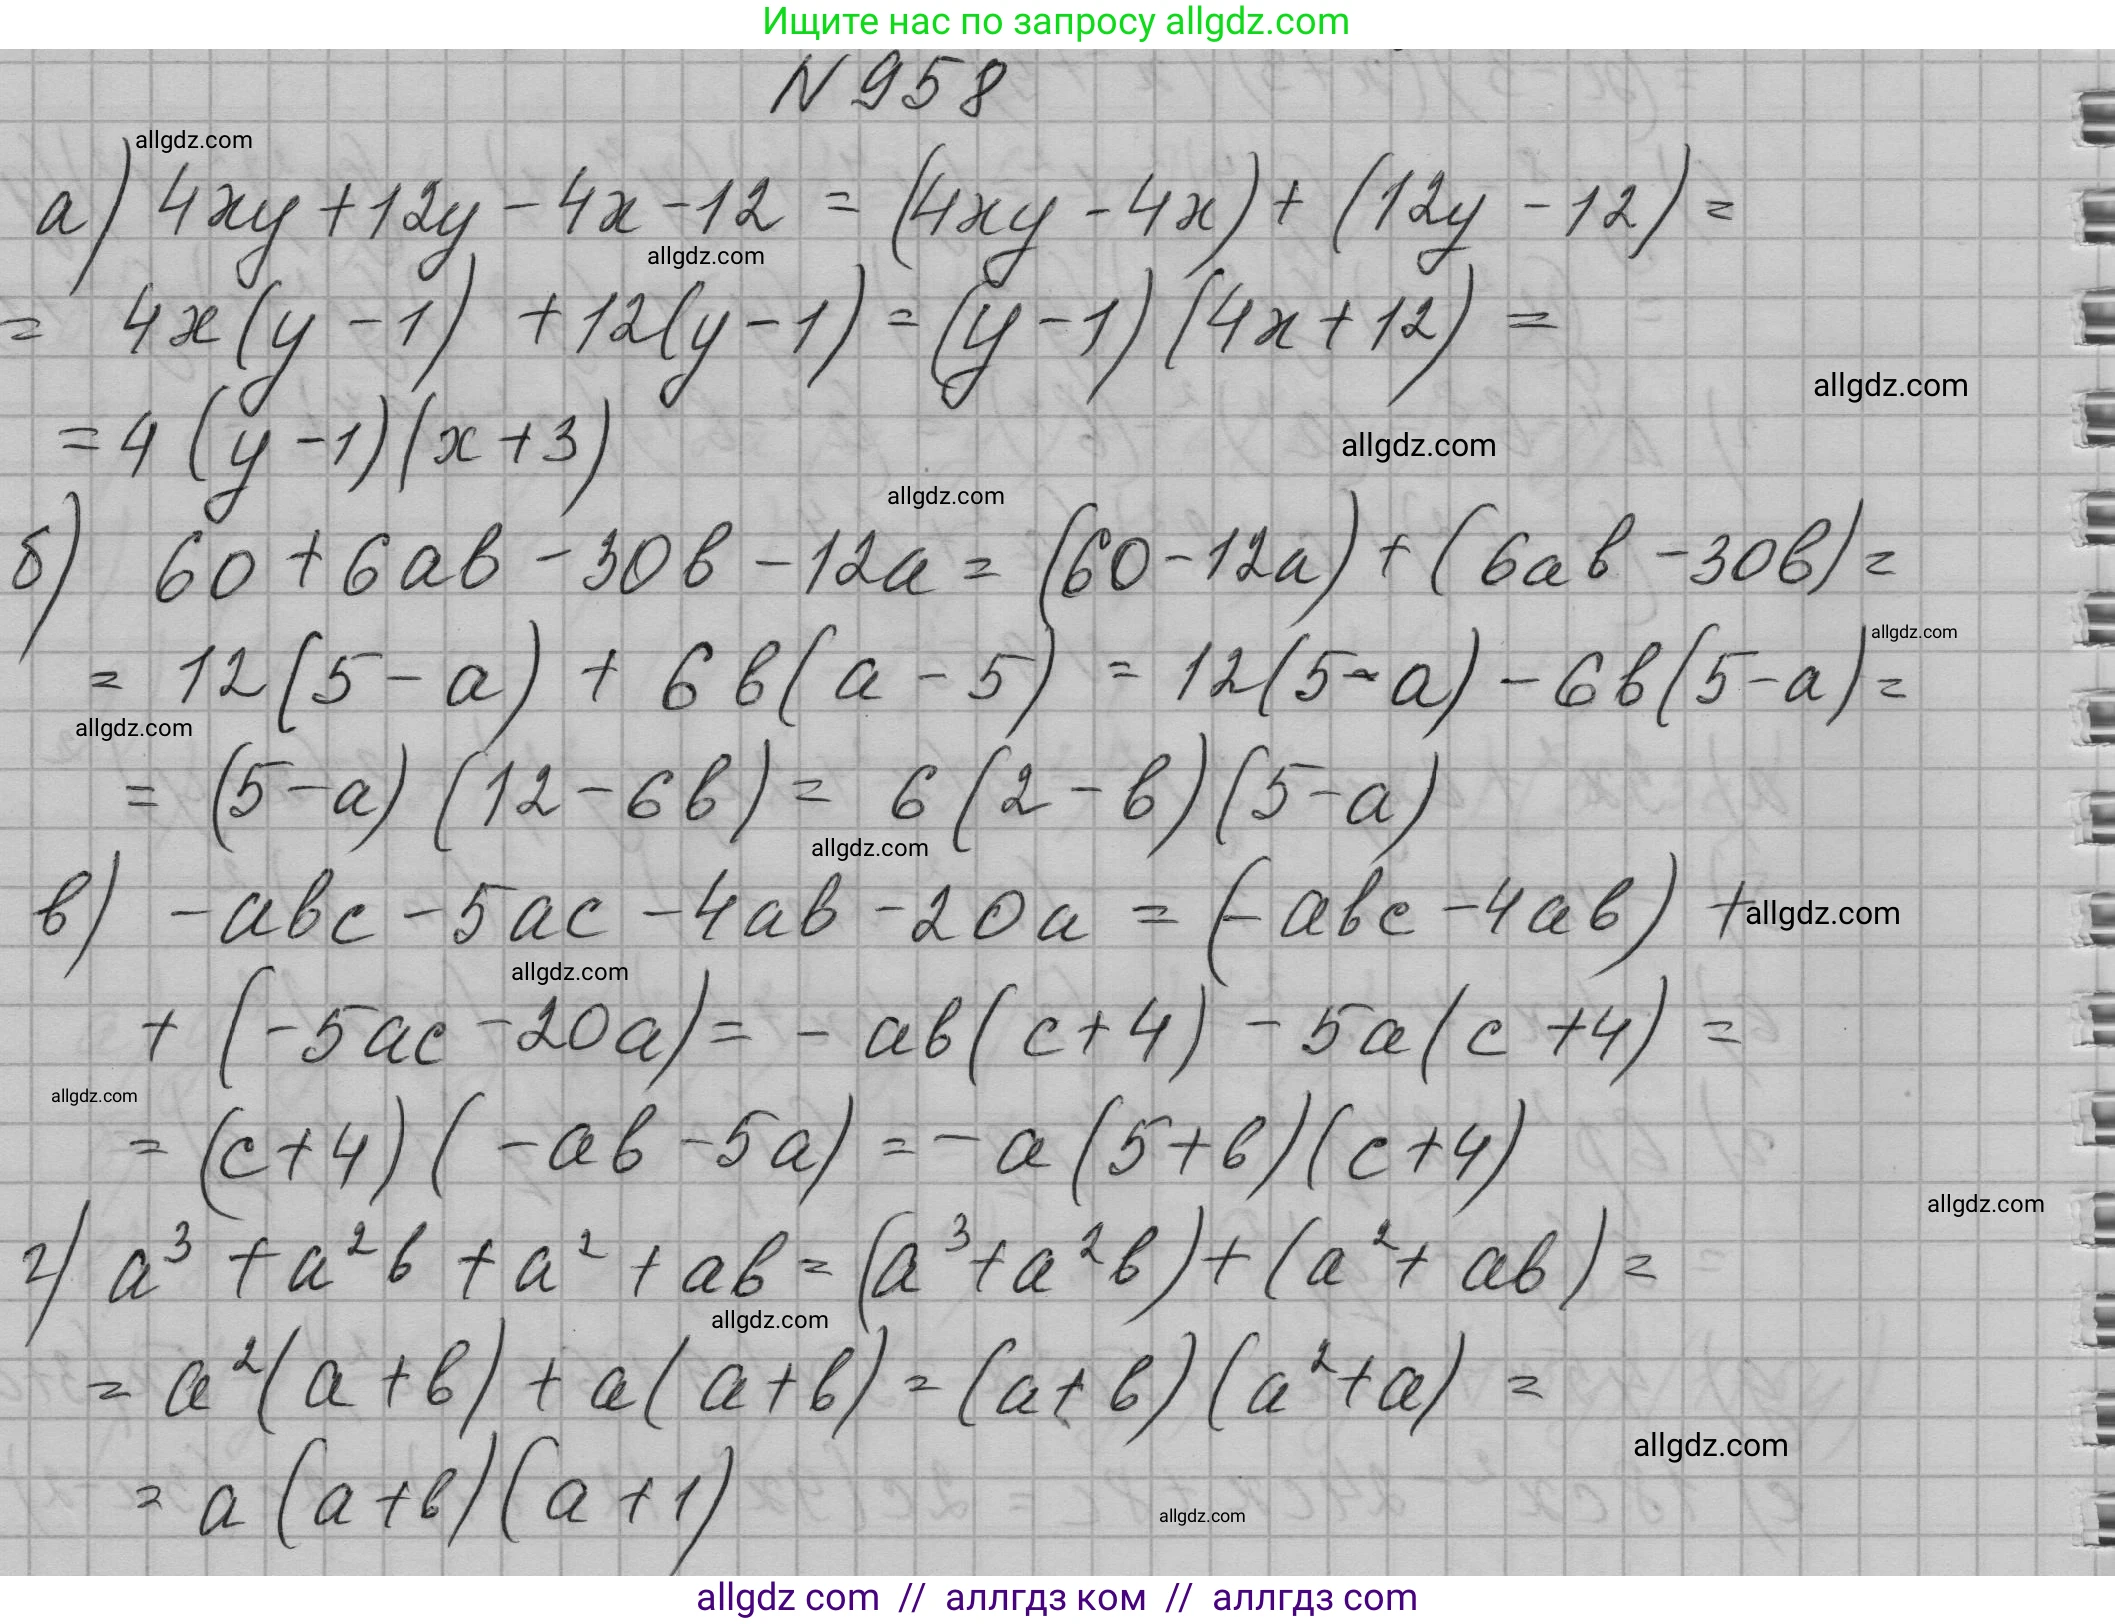 Ищите нас по запросу allgdz.com
N 958
allgdz.com
а) 4xy + 12y - 4x - 12 = (4xy - 4x) + (12y - 12) =
allgdz.com
= 4x(y - 1) + 12(y - 1) = (y - 1)(4x + 12) =
allgdz.com
= 4(y - 1)(x + 3)
allgdz.com
allgdz.com
б) 60 + 6ab - 30b - 12a = (60 - 12a) + (6ab - 30b) =
allgdz.com
= 12(5 - a) + 6b(a - 5) = 12(5 - a) - 6b(5 - a) =
allgdz.com
= (5 - a)(12 - 6b) = 6(2 - b)(5 - a)
allgdz.com
в) -abc - 5ac - 4ab - 20a = (-abc - 4ab) +
allgdz.com
allgdz.com
+ (-5ac - 20a) = -ab(c + 4) - 5a(c + 4) =
allgdz.com
= (c + 4)(-ab - 5a) = -a(5 + b)(c + 4)
allgdz.com
г) a³ + a²b + a² + ab = (a³ + a²b) + (a² + ab) =
allgdz.com
= a²(a + b) + a(a + b) = (a + b)(a² + a) =
allgdz.com
= a(a + b)(a + 1)
allgdz.com
allgdz com // аллгдз ком // аллгдз com